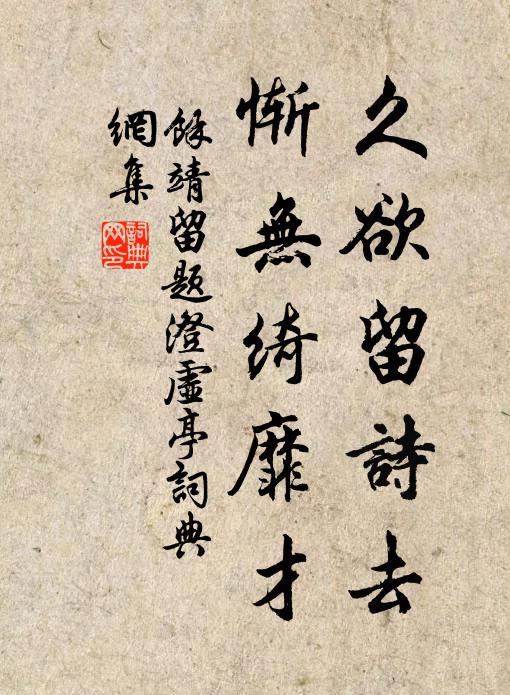 久欲留詩去
慚無綺靡才
餘靖留題澄虛亭詞典
網集
詞典
网印